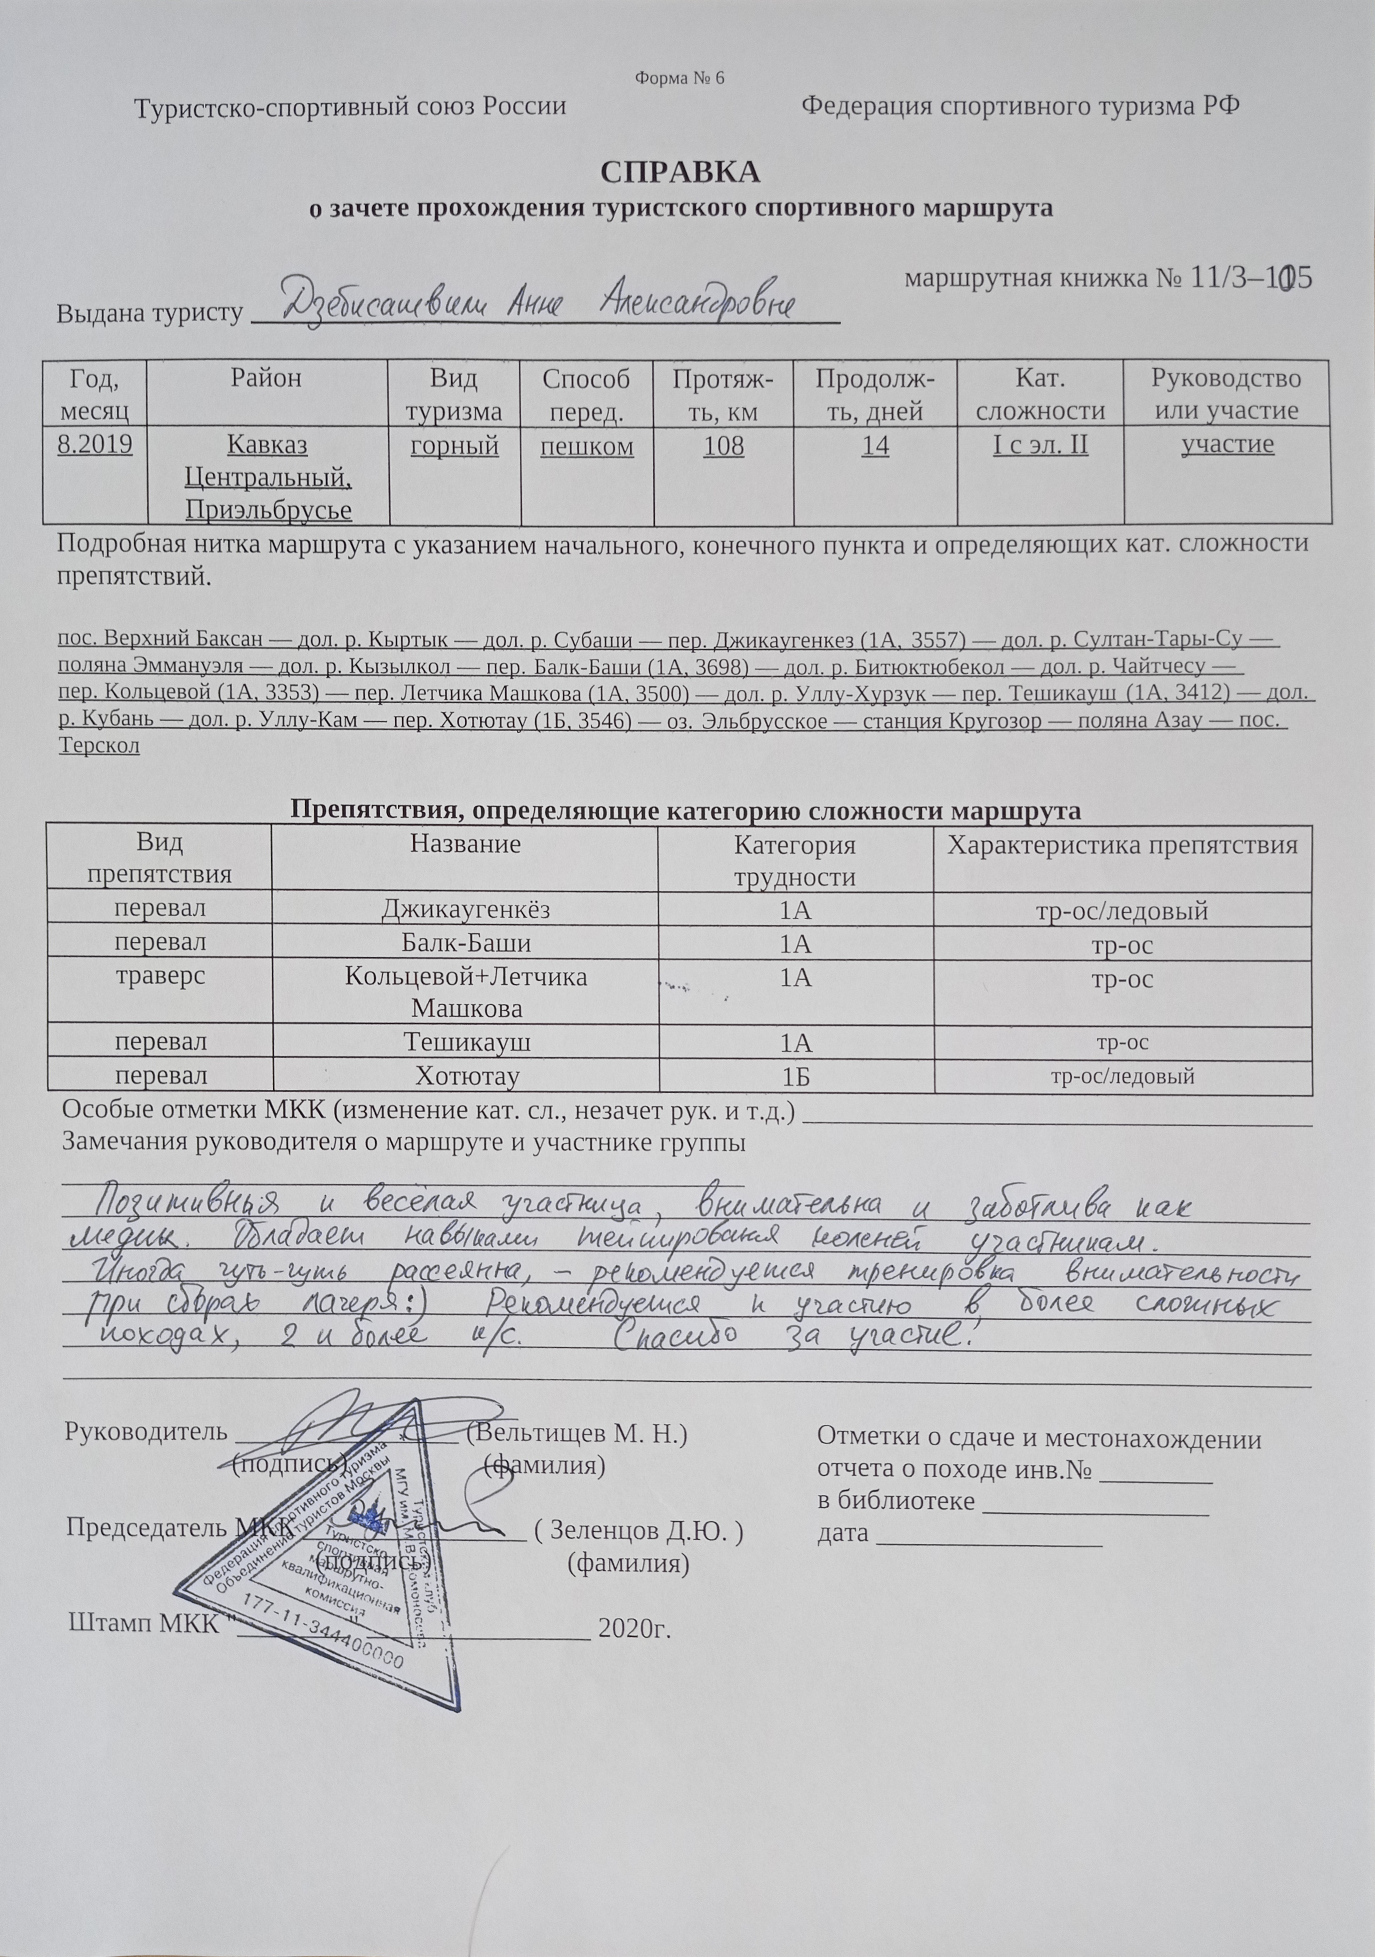 Форма № 6
Туристско-спортивный союз России Федерация спортивного туризма РФ
СПРАВКА
о зачете прохождения туристского спортивного маршрута
маршрутная книжка № 11/3–105
Выдана туристу Дзебисашвили Анне Александровне
Год, месяц Район Вид туризма Способ перед. Протяж-ть, км Продолж-ть, дней Кат. сложности Руководство или участие
8.2019 Кавказ Центральный, Приэльбрусье горный пешком 108 14 I с эл. II участие
Подробная нитка маршрута с указанием начального, конечного пункта и определяющих кат. сложности
препятствий.
пос. Верхний Баксан — дол. р. Кыртык — дол. р. Субаши — пер. Джикаугенкез (1А, 3557) — дол. р. Султан-Тары-Су —
поляна Эммануэля — дол. р. Кызылкол — пер. Балк-Баши (1А, 3698) — дол. р. Битюктюбекол — дол. р. Чайтчесу —
пер. Кольцевой (1А, 3353) — пер. Летчика Машкова (1А, 3500) — дол. р. Уллу-Хурзук — пер. Тешикауш (1А, 3412) — дол.
р. Кубань — дол. р. Уллу-Кам — пер. Хотютау (1Б, 3546) — оз. Эльбрусское — станция Кругозор — поляна Азау — пос.
Терскол
Препятствия, определяющие категорию сложности маршрута
Вид препятствия Название Категория трудности Характеристика препятствия
перевал Джикаугенкёз 1А тр-ос/ледовый
перевал Балк-Баши 1А тр-ос
траверс Кольцевой+Летчика Машкова 1А тр-ос
перевал Тешикауш 1А тр-ос
перевал Хотютау 1Б тр-ос/ледовый
Особые отметки МКК (изменение кат. сл., незачет рук. и т.д.)
Замечания руководителя о маршруте и участнике группы
Позитивная и весёлая участница, внимательна и заботлива как
медик. Обладает навыками тейпирования коленей участникам.
Иногда чуть-чуть рассеянна, – рекомендуется тренировка внимательности
при сборах лагеря:) Рекомендуется к участию в более сложных
походах, 2 и более к/с. Спасибо за участие!
Руководитель (Вельтищев М. Н.)
(подпись) (фамилия)
Председатель МКК ( Зеленцов Д.Ю. )
(подпись) (фамилия)
Штамп МКК " " 2020г.
Отметки о сдаче и местонахождении
отчета о походе инв.№
в библиотеке
дата
Федерация спортивного туризма
Объединение туристов Москвы
Туристский клуб
МГУ им. М.В. Ломоносова
Туристско-
спортивная
маршрутно-
квалификационная
комиссия
177-11-344400000